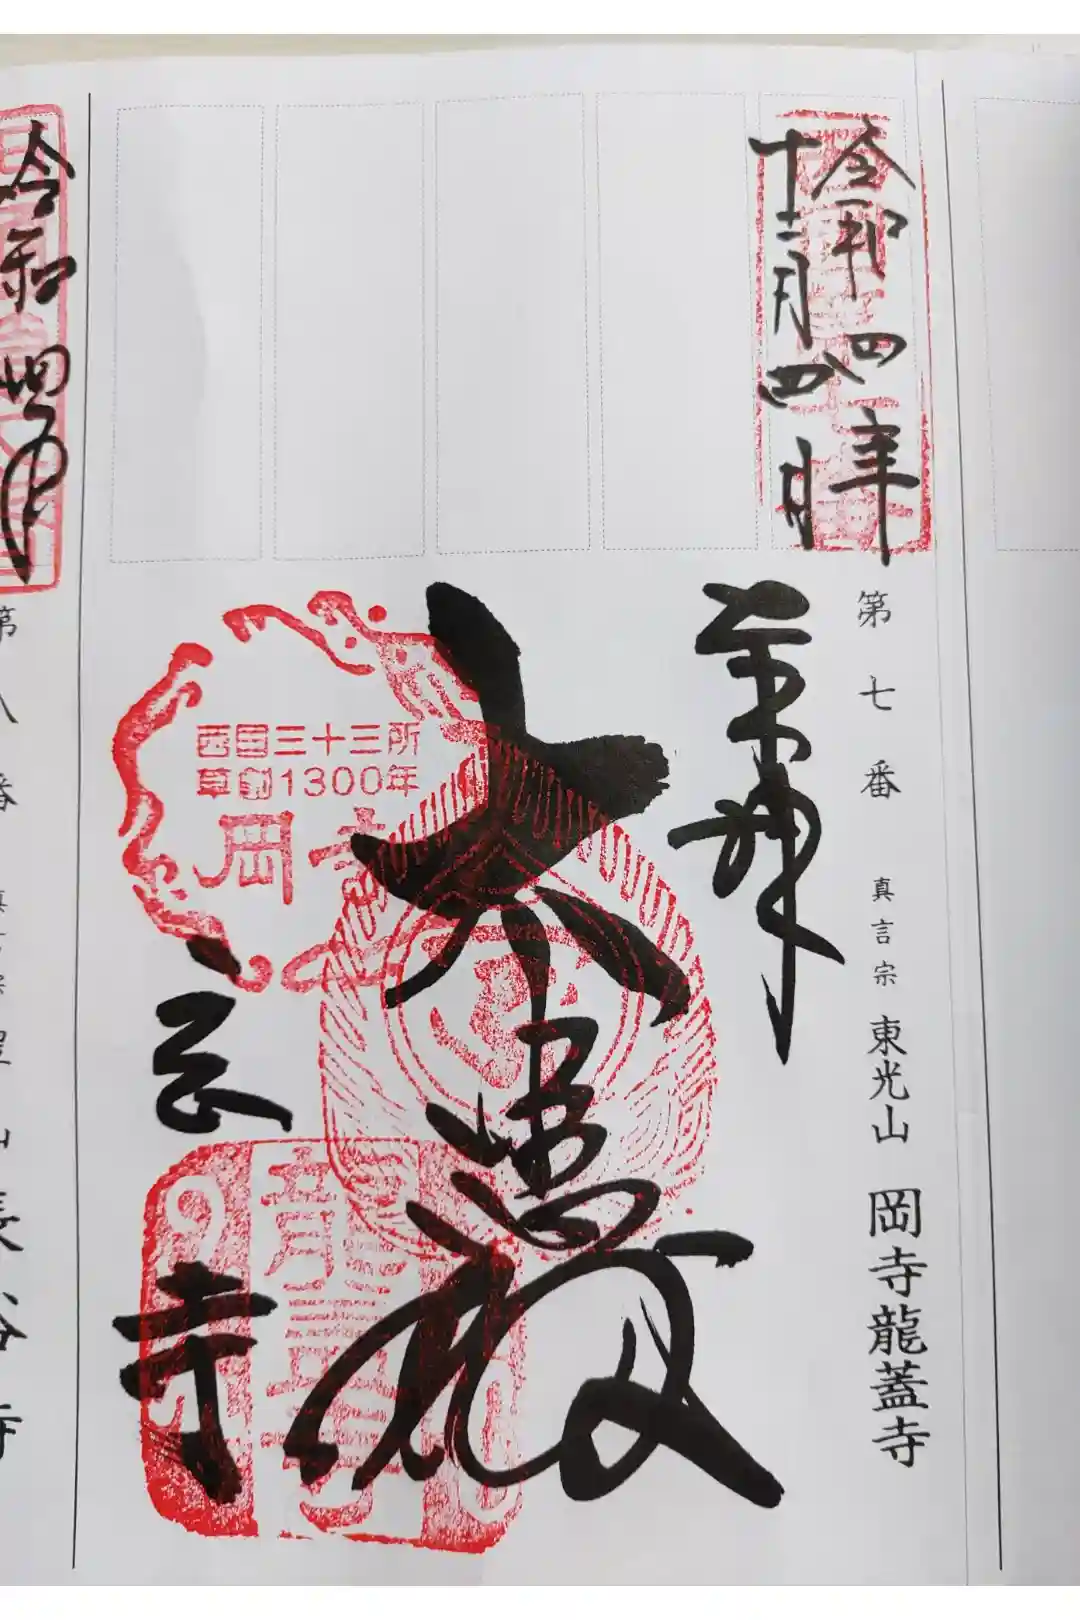 令和四年
十二月四日
第七番 真言宗 東光山 岡寺龍蓋寺
奉拝
大悲殿
寺
西国三十三所
草創1300年
岡寺
令和四年
第八番
山長谷寺